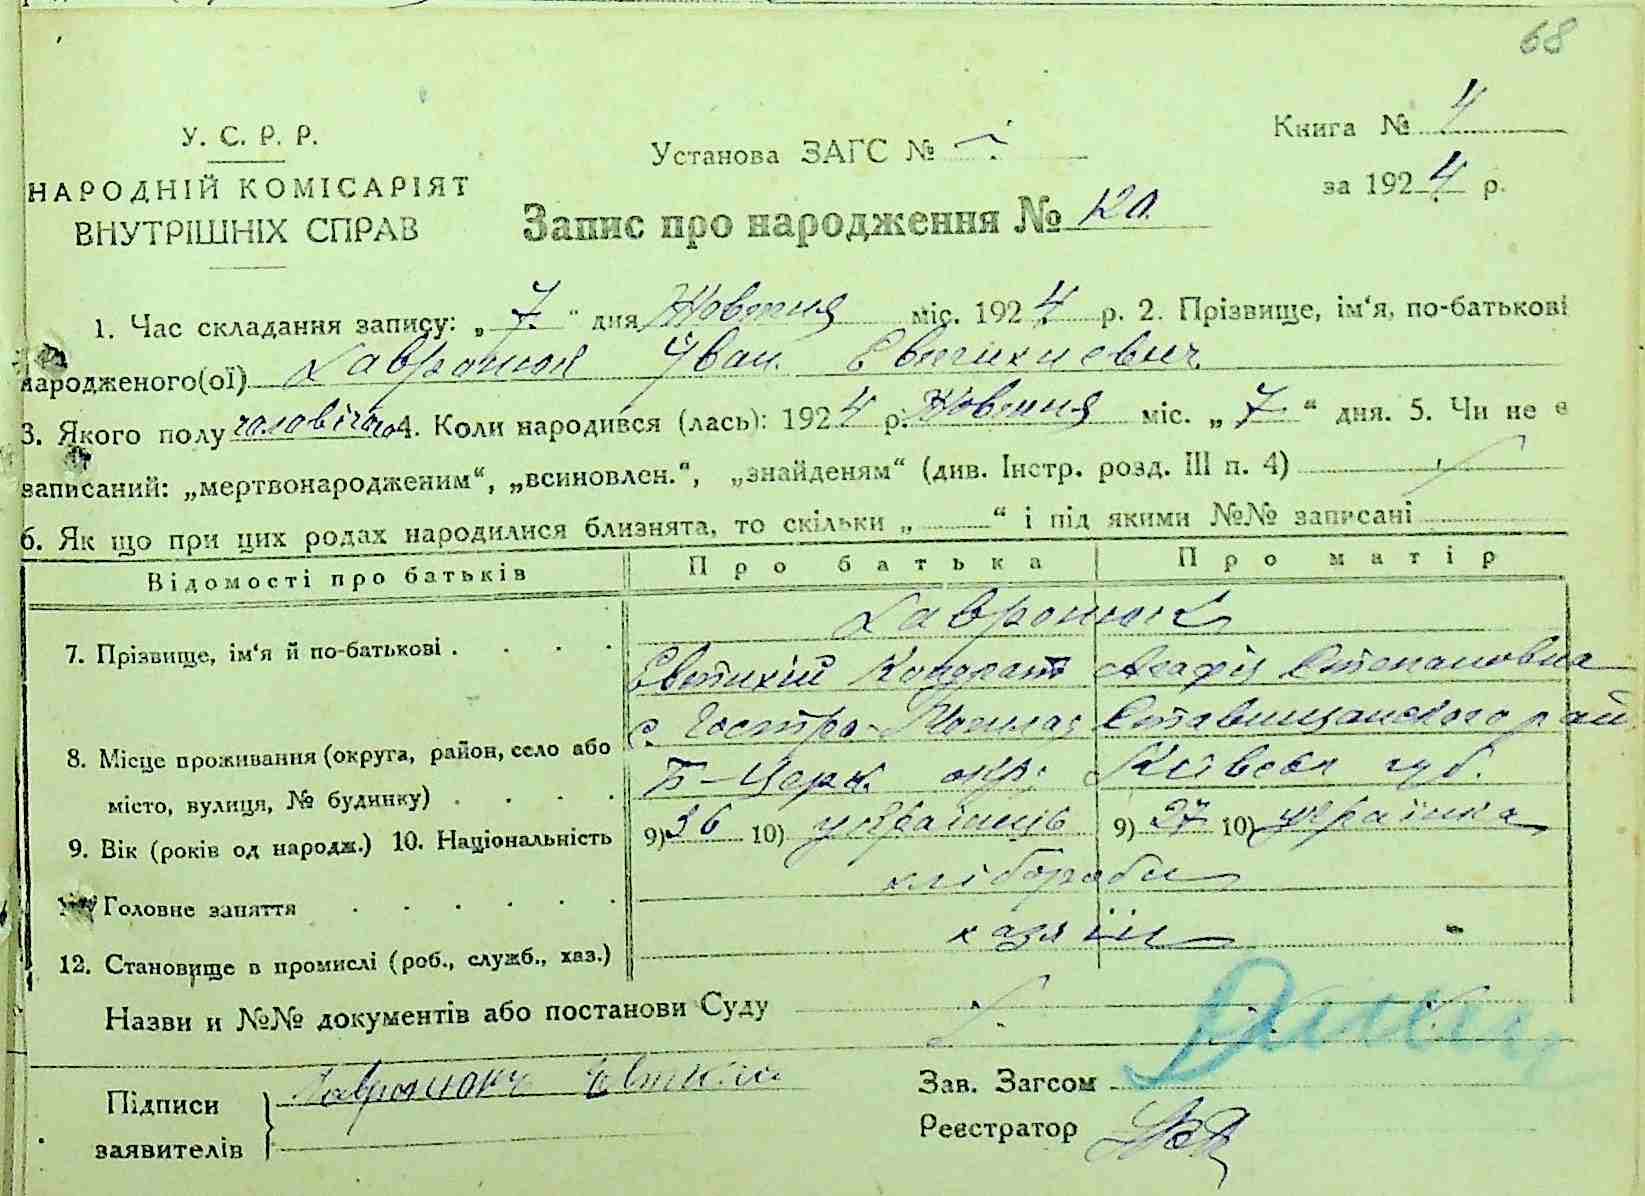 68
У. С. Р. Р.
НАРОДНІЙ КОМІСАРІЯТ
ВНУТРІШНІХ СПРАВ
Установа ЗАГС №
Книга № 4
за 1924 р.
Запис про народження № 120.
1. Час складання запису: „ 7 “ дня Жовтня міс. 1924 р. 2. Прізвище, ім‘я, по-батькові
народженого(ої) Лавронюк Іван Євтихиевич
3. Якого полу чоловічого 4. Коли народився (лась): 1924 р. Жовтня міс. „ 7 “ дня. 5. Чи не є
записаний: „мертвонародженим“, „всиновлен.“, „знайденям“ (див. Інстр. розд. III п. 4)
6. Як що при цих родах народилися близнята, то скільки „ “ і під якими №№ записані
Відомості про батьків Про батька Про матір
Лавронюк
7. Прізвище, ім‘я й по-батькові . . . .
Євтихій Кондрат Агафія Степановна
с. Гостра-Могила Ставищанского рай
8. Місце проживання (округа, район, село або
Б-Церк. окр. Київськ губ.
місто, вулиця, № будинку) . . . .
9. Вік (років од народж.) 10. Національність 9) 36 10) українець 9) 27 10) українка
хлібороби
Головне заняття . . . . . .
хазяїн "
12. Становище в промислі (роб., служб., хаз.)
Назви и №№ документів або постанови Суду
Підписи
заявителів
Лавронюк Євтихи
Зав. Загсом
Реєстратор